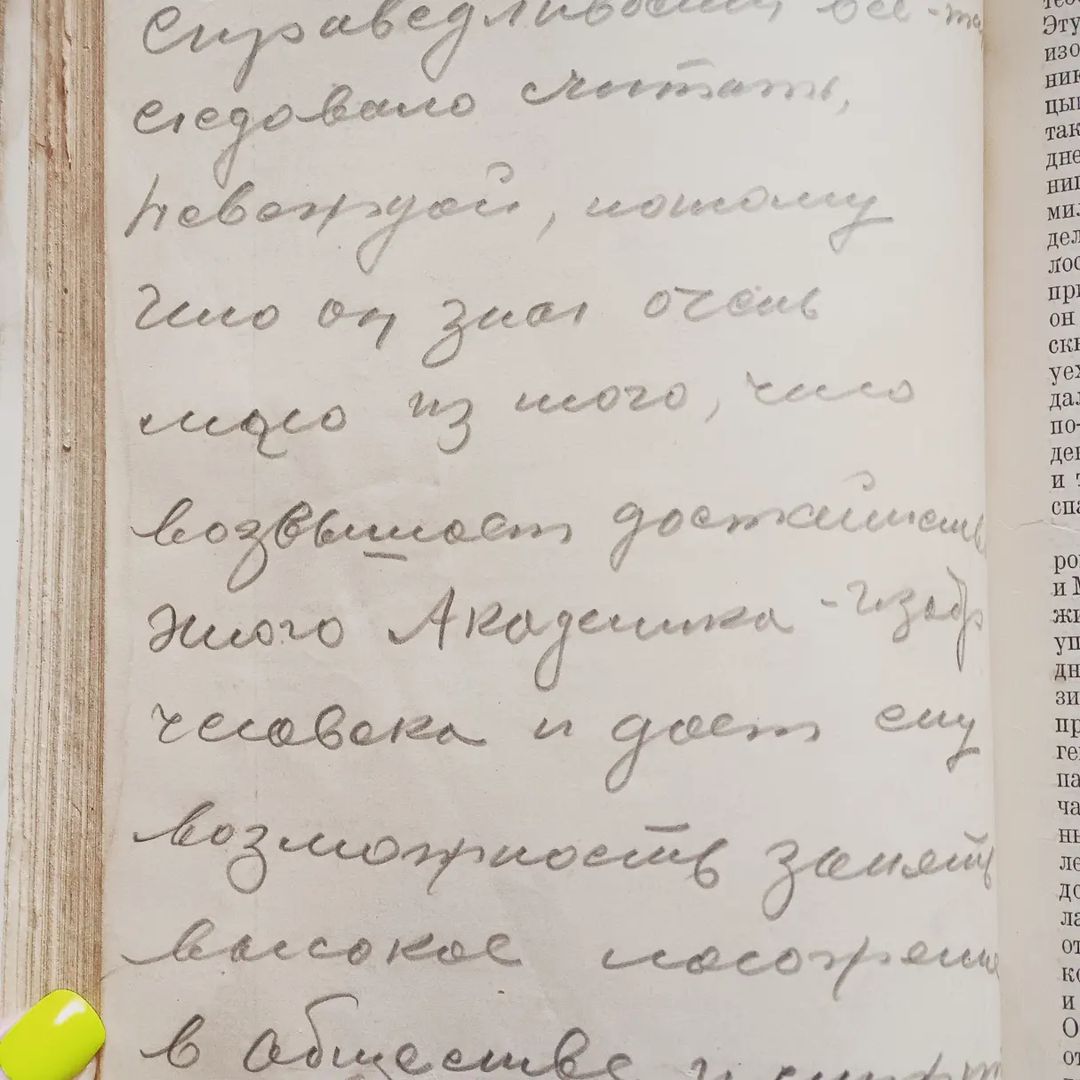 справедливости все-та
следовало считать,
невеждой, потому
что он знал очень
мало из того, что
возвышает достоинств
этого Академика
человека и дает ему
возможность занять
высокое положение
в обществе и
Эту
изо
ник
цы
так
дне
ниц
мил
дел
лос
при
он
скь
уех
дал
по-
ден
и т
спа
ро
и М
жи
уп
дн
зи
пр
ге
па
ча
ны
ле
до
ла
от
ко
и
О
от